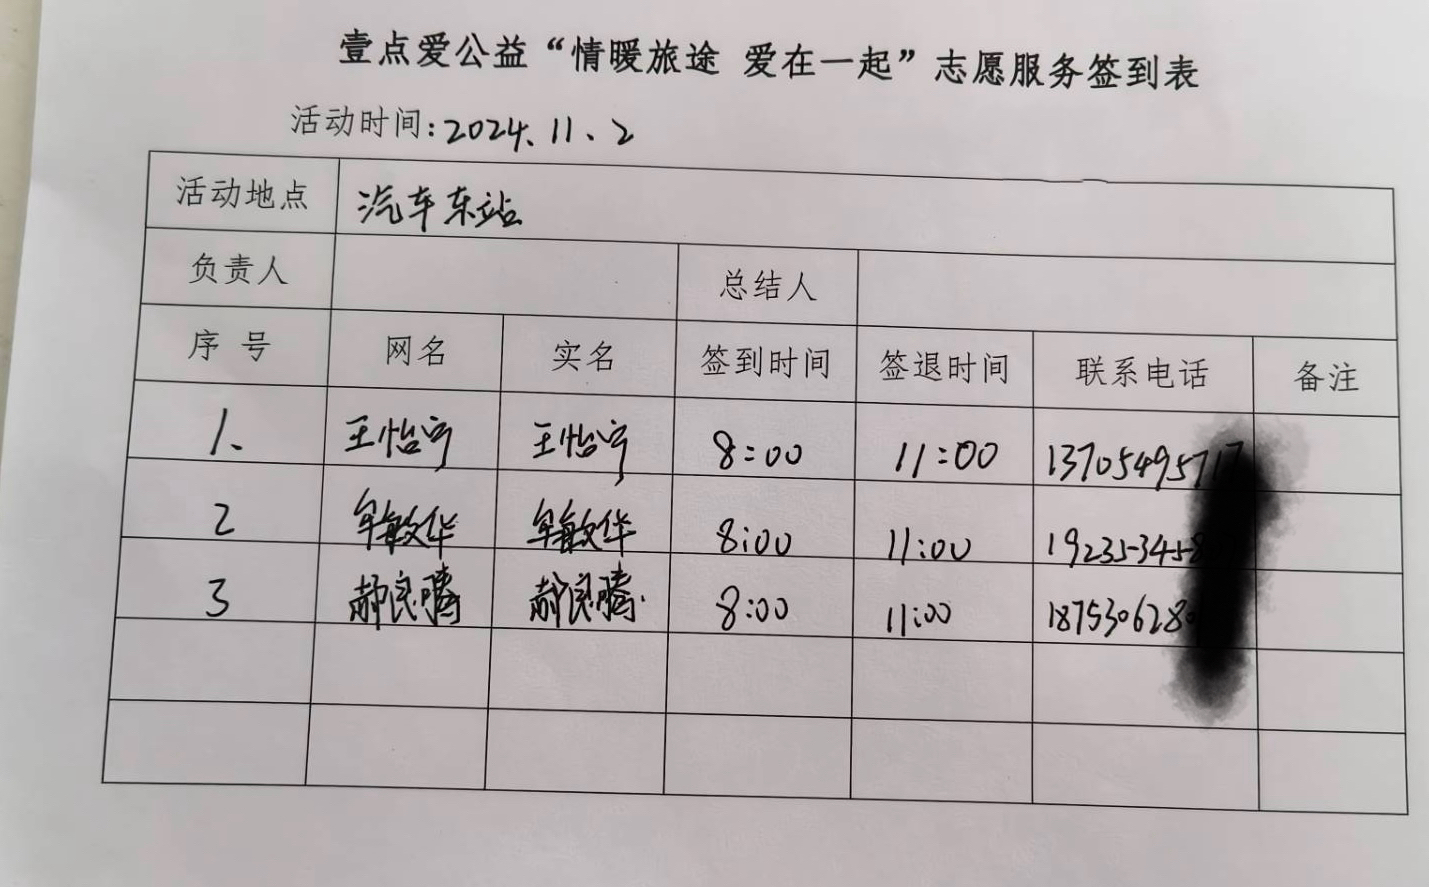 壹点爱公益“情暖旅途 爱在一起”志愿服务签到表
活动时间:2024.11、2
活动地点 汽车东站
负责人 总结人
序号 网名 实名 签到时间 签退时间 联系电话 备注
1、 王怡宁 王怡宁 8:00 11:00 137054957
2 牟敏华 牟敏华 8:00 11:00 19235345
3 郝良腾 郝良腾 8:00 11:00 187530628